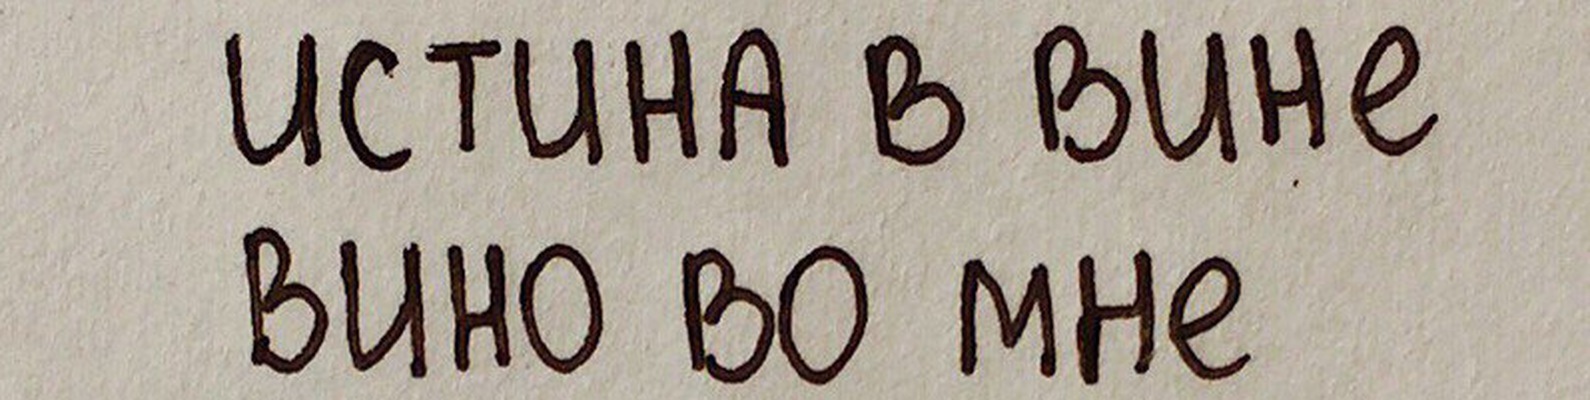 истина в вине
вино во мне